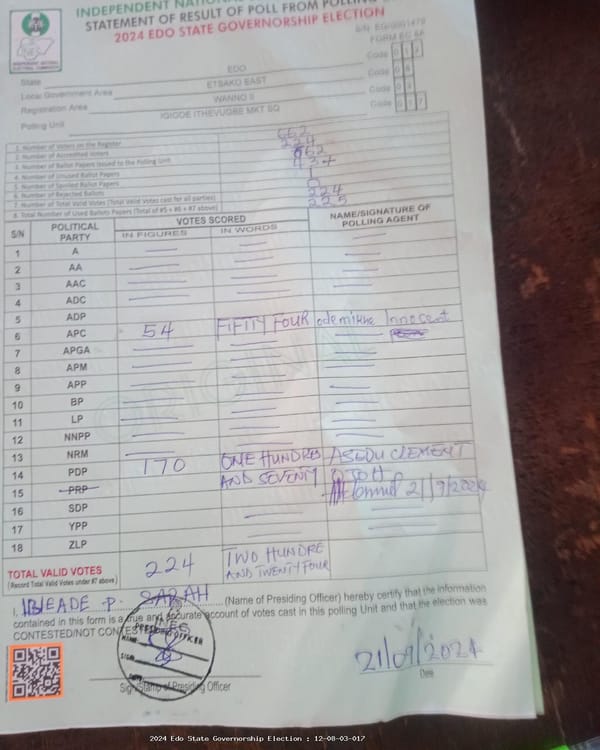 INDEPENDENT NATIONAL
STATEMENT OF RESULT OF POLL FROM POLLING
2024 EDO STATE GOVERNORSHIP ELECTION
FORM EC 8A
State EDO Code 012
Local Government Area ETSAKO EAST Code 08
Registration Area WANNO II Code 03
Polling Unit IGIODE ITHEVUGBE MKT SQ Code 017
1. Number of Voters on the Register 662
2. Number of Accredited Voters 224
3. Number of Ballot Papers Issued to the Polling Unit 662
4. Number of Unused Ballot Papers 437
5. Number of Spoiled Ballot Papers 1
6. Number of Rejected Ballots 0
7. Number of Total Valid Votes (Total Valid Votes cast for all parties) 224
8. Total Number of Used Ballots Papers (Total of #5 + #6 + #7 above) 225
S/N POLITICAL PARTY VOTES SCORED NAME/SIGNATURE OF POLLING AGENT
IN FIGURES IN WORDS
1 A
2 AA
3 AAC
4 ADC
5 ADP
6 APC 54 FIFITY FOUR Innocent
7 APGA
8 APM
9 APP
10 BP
11 LP
12 NNPP
13 NRM
14 PDP 170 ONE HUNDRED AND SEVENTY ASEDU CLEMENT
15 PRP 21/9/2024
16 SDP
17 YPP
18 ZLP
TOTAL VALID VOTES 224 TWO HUNDRE AND TWENTY FOUR
(Record Total Valid Votes under #7 above)
I, P. SARAH (Name of Presiding Officer) hereby certify that the information
contained in this form is a true and accurate account of votes cast in this polling Unit and that the election was
CONTESTED/NOT CONTESTED
21/09/2024
Sign/Stamp of Presiding Officer Date
ORIGINAL
2024 Edo State Governorship Election : 12-08-03-017